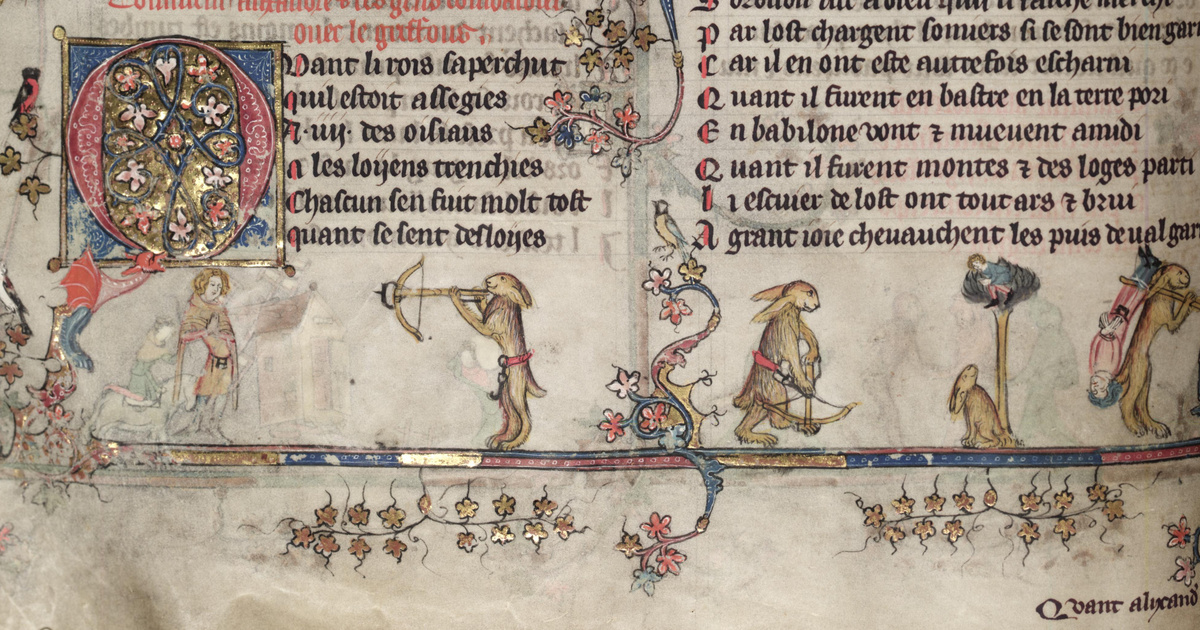 Comment alixandre & ses gens combatent
ouec le griffons.
Quant li rois saperchut
quil estoit assegies
A .iiij. des oisiaus
a les loijens trenchies
Chascun sen fuit molt tost
quant se sent desloijes
P ar lost chargent somiers si se sont bien gar
C ar il en ont este autrefois escharni
Q uant il furent en bastre en la terre pori
E n babilone vont ⁊ muevent amidi
Q uant il furent montes ⁊ des loges parti
L i escuier de lost ont tout ars ⁊ brui
A grant ioie chevauchent les puis de val gar
Quant alixand